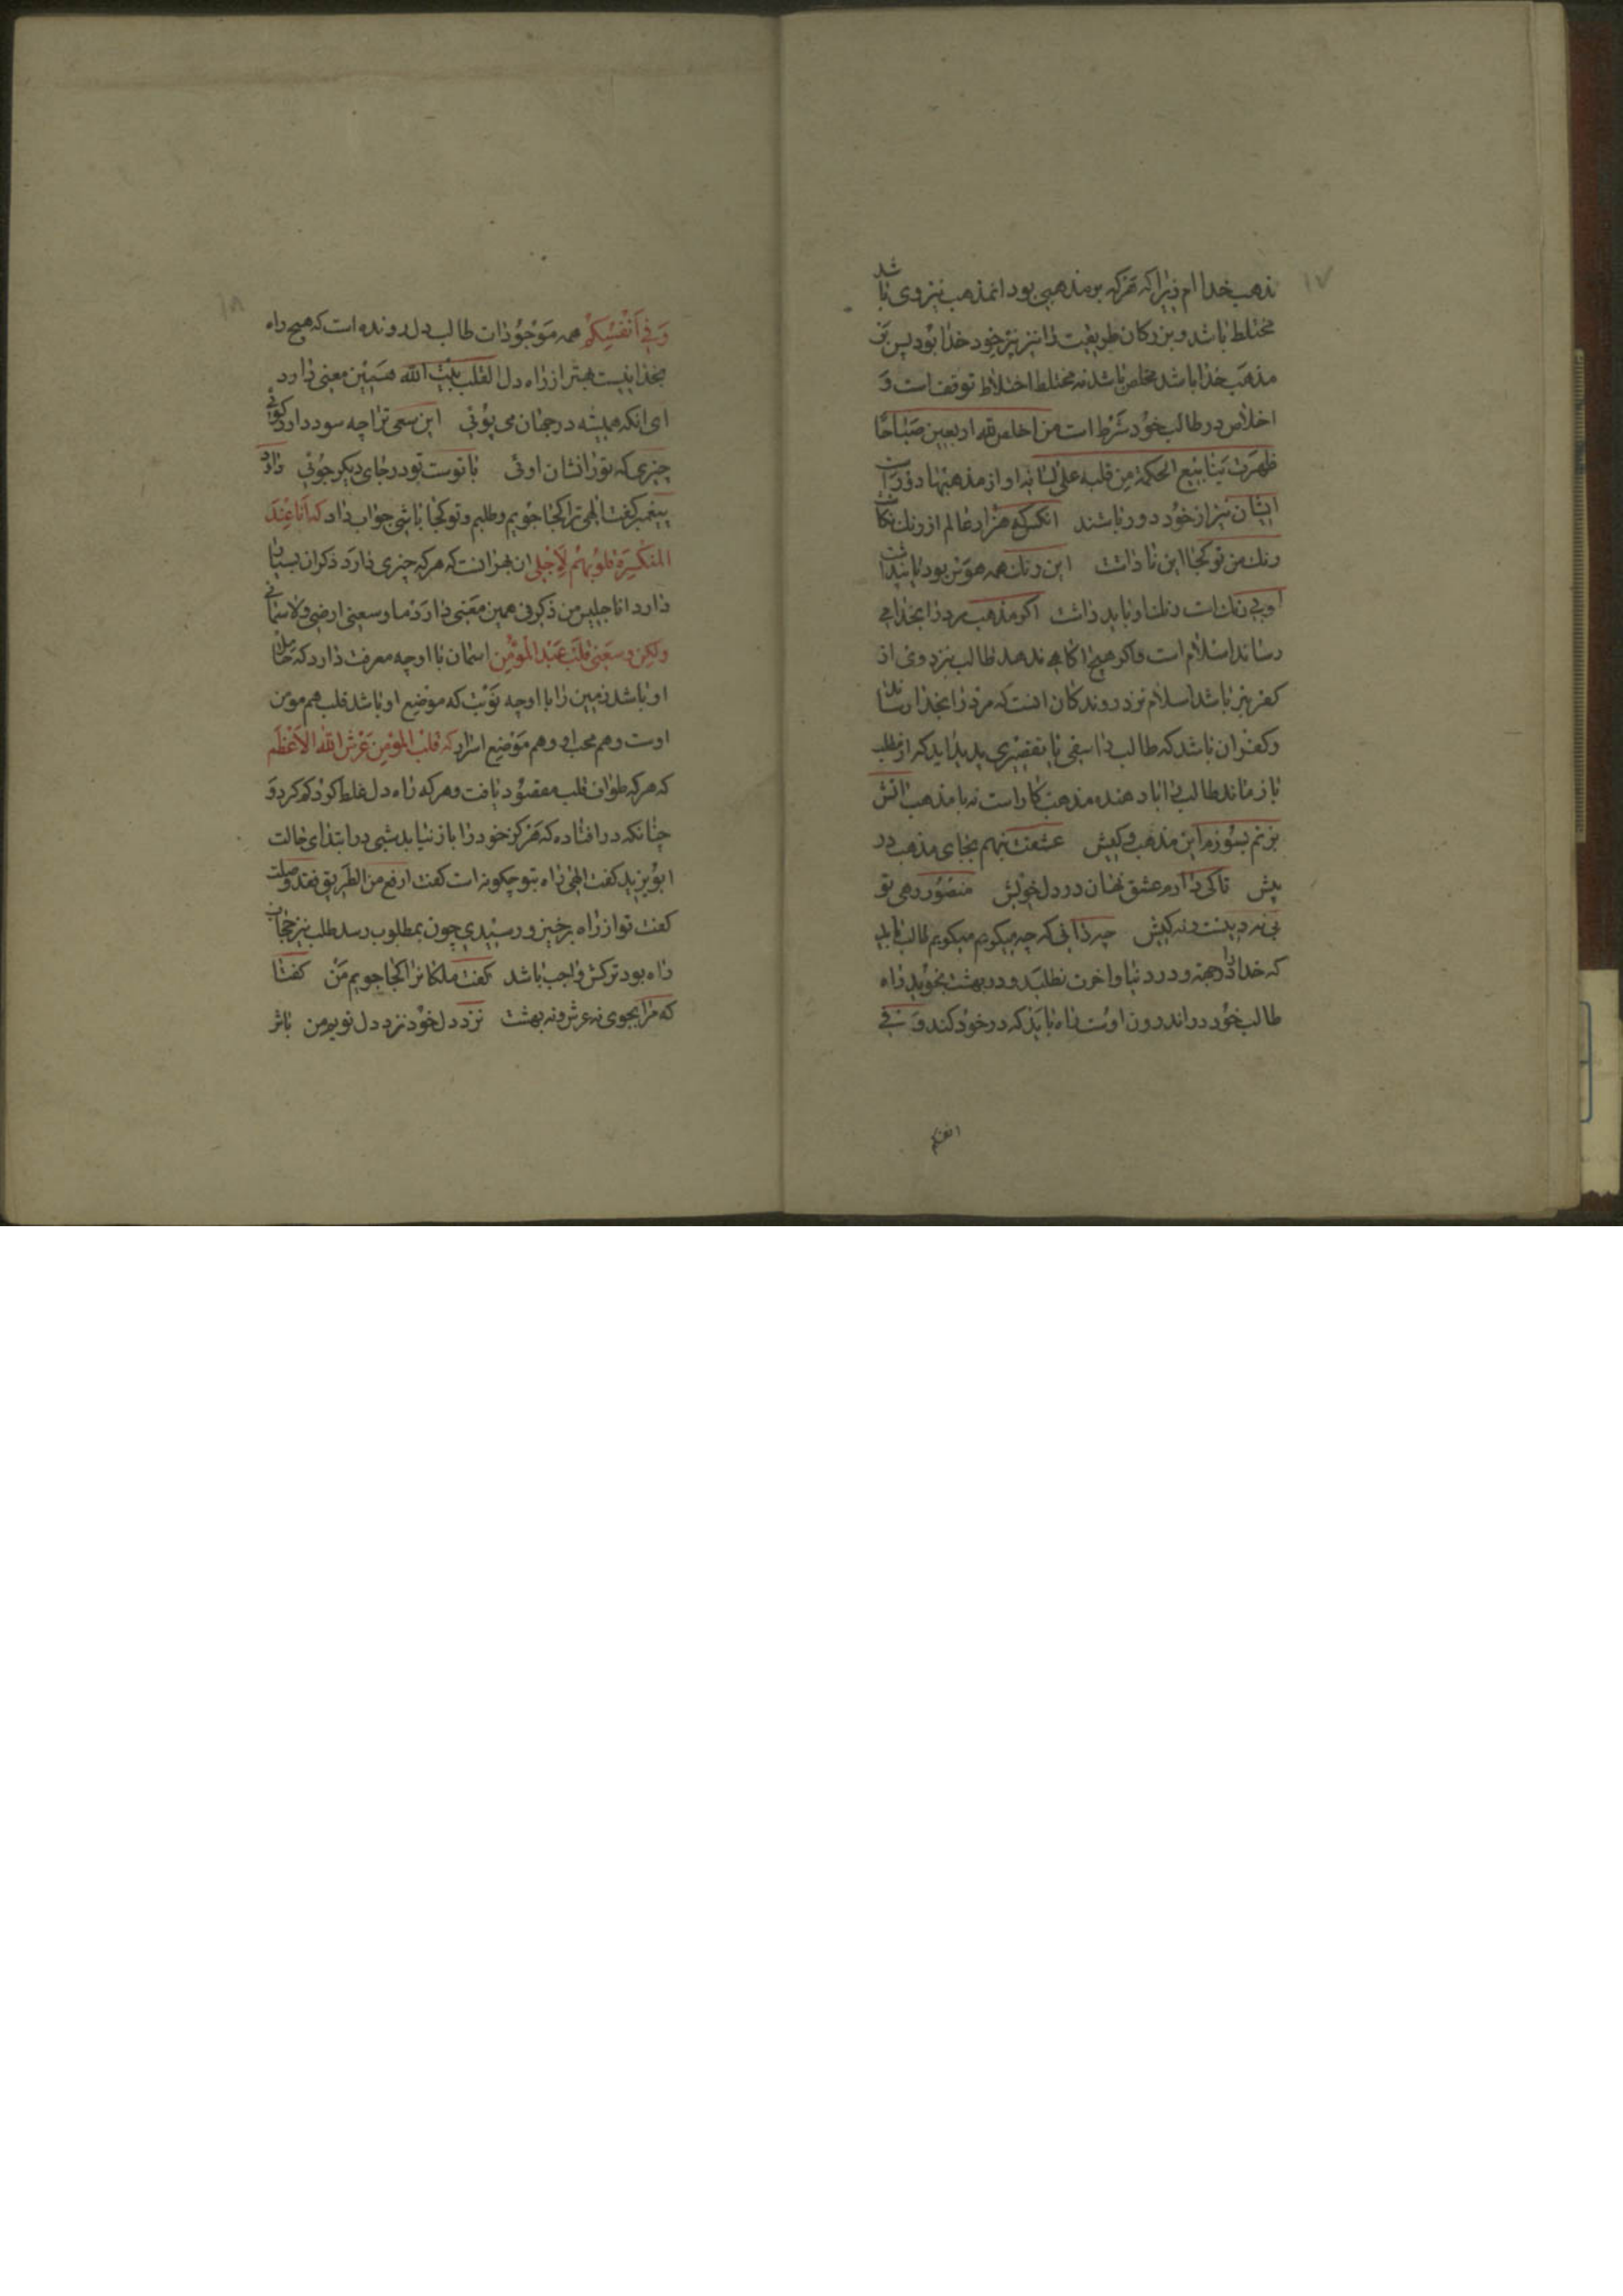 ۱۷
مذهب خداام زیرا که هرکه بر مذهبی بود انمذهب نیز وی باشد
مختلط باشد و بزرکان طریقیت را نیز پیر خود خدا بود پس بر
مذهب خدا باشد مخلص باشد نه مختلط اختلاط توقفست و
اخلاص در طالب خود شرط است من اخلص لله اربعین صباحا
ظهرت ینابیع الحکمة من قلبه علی لسانه او از مذهبها دور است
ایشان نیز از خود دور باشند انکس که هزار عالم از رنك نکاشت
رنك من تو کجا این ناداشت این رنك همه هوس بود یا پنداشت
او بی رنك است رنك او باید داشت اکر مذهب مرد را بخدا می
رساند اسلام است و اکر هیچ اکاهی ندهد طالب نزد وی از
کفر بتر باشد اسلام نزد روندکان انست که مرد را بخدا رساند
و کفر ان باشد که طالب را سغی یا تقصیری پدید اید که از مطلب
باز ماند طالب را با دهنده مذهب کار است نه با مذهب اتش
بزنم بسوزم این مذهب و کیش عشقت بنهم بجای مذهب در
پیش تا کی دارم عشق نهان در دل خویش مقصود رهی تو
ئی نه دینست و نه کیش چه دانی که چه میکویم میکویم طالب باید
که خدا را در جنه و در دنیا و اخرت نطلبد و در بهشت نجوید راه
طالب خود در اندرون اوست راه باید که در خود کند و فی
انفسکم
۱۸
وَفی اَنْفُسِکُمْ همه موجودات طالب دل رونده است که هیچ راه
بخدا نیست بهتر از راه دل القلب بیت الله همین معنی دارد
ای انکه همیشه در جهان می پوئی این سعی ترا چه سود دارد کوئی
چیزی که تو را نشان اوئی با توست تو در جای دیکر جوئی داود
پیغمبر کفت الهی ترا کجا جویم و طلبم و تو کجا باشی جواب داد که انا عند
المنکسرة قلوبهم لاجلی ان بهر انست که هر که چیزی دارد ذکر ان بسیار
دارد انا جلیس من ذکرنی همین معنی دارد ما وسعنی ارضی ولا سمائی
ولکن وسعنی قلب عبد المؤمن اسمان با او چه معرفت دارد که حامل
او باشد زمین را با او چه قربت که موضع او باشد قلب هم مونس
اوست و هم محب او و هم موضع اسرار که قلب المؤمن عرش الله الاعظم
که هر که طواف قلب مقصود یافت و هر که راه دل غلط کرد کم کرد و
چنانکه در افتاده که هرکز خود را باز نیابد شبی در ابتدای حالت
ابو یزید کفت الهی راه بتو چکونه است کفت ارفع من الطریق فقد وصلت
کفت تو از راه برخیز و رسیدی چون بمطلوب رسد طلب نیز حجاب
راه بود ترکش واجب باشد کفت ملکا ترا کجا جویم من کفتا
که مرا مجوی نه عرش و نه بهشت نزد دل خود نزد دل تو بوم من باش